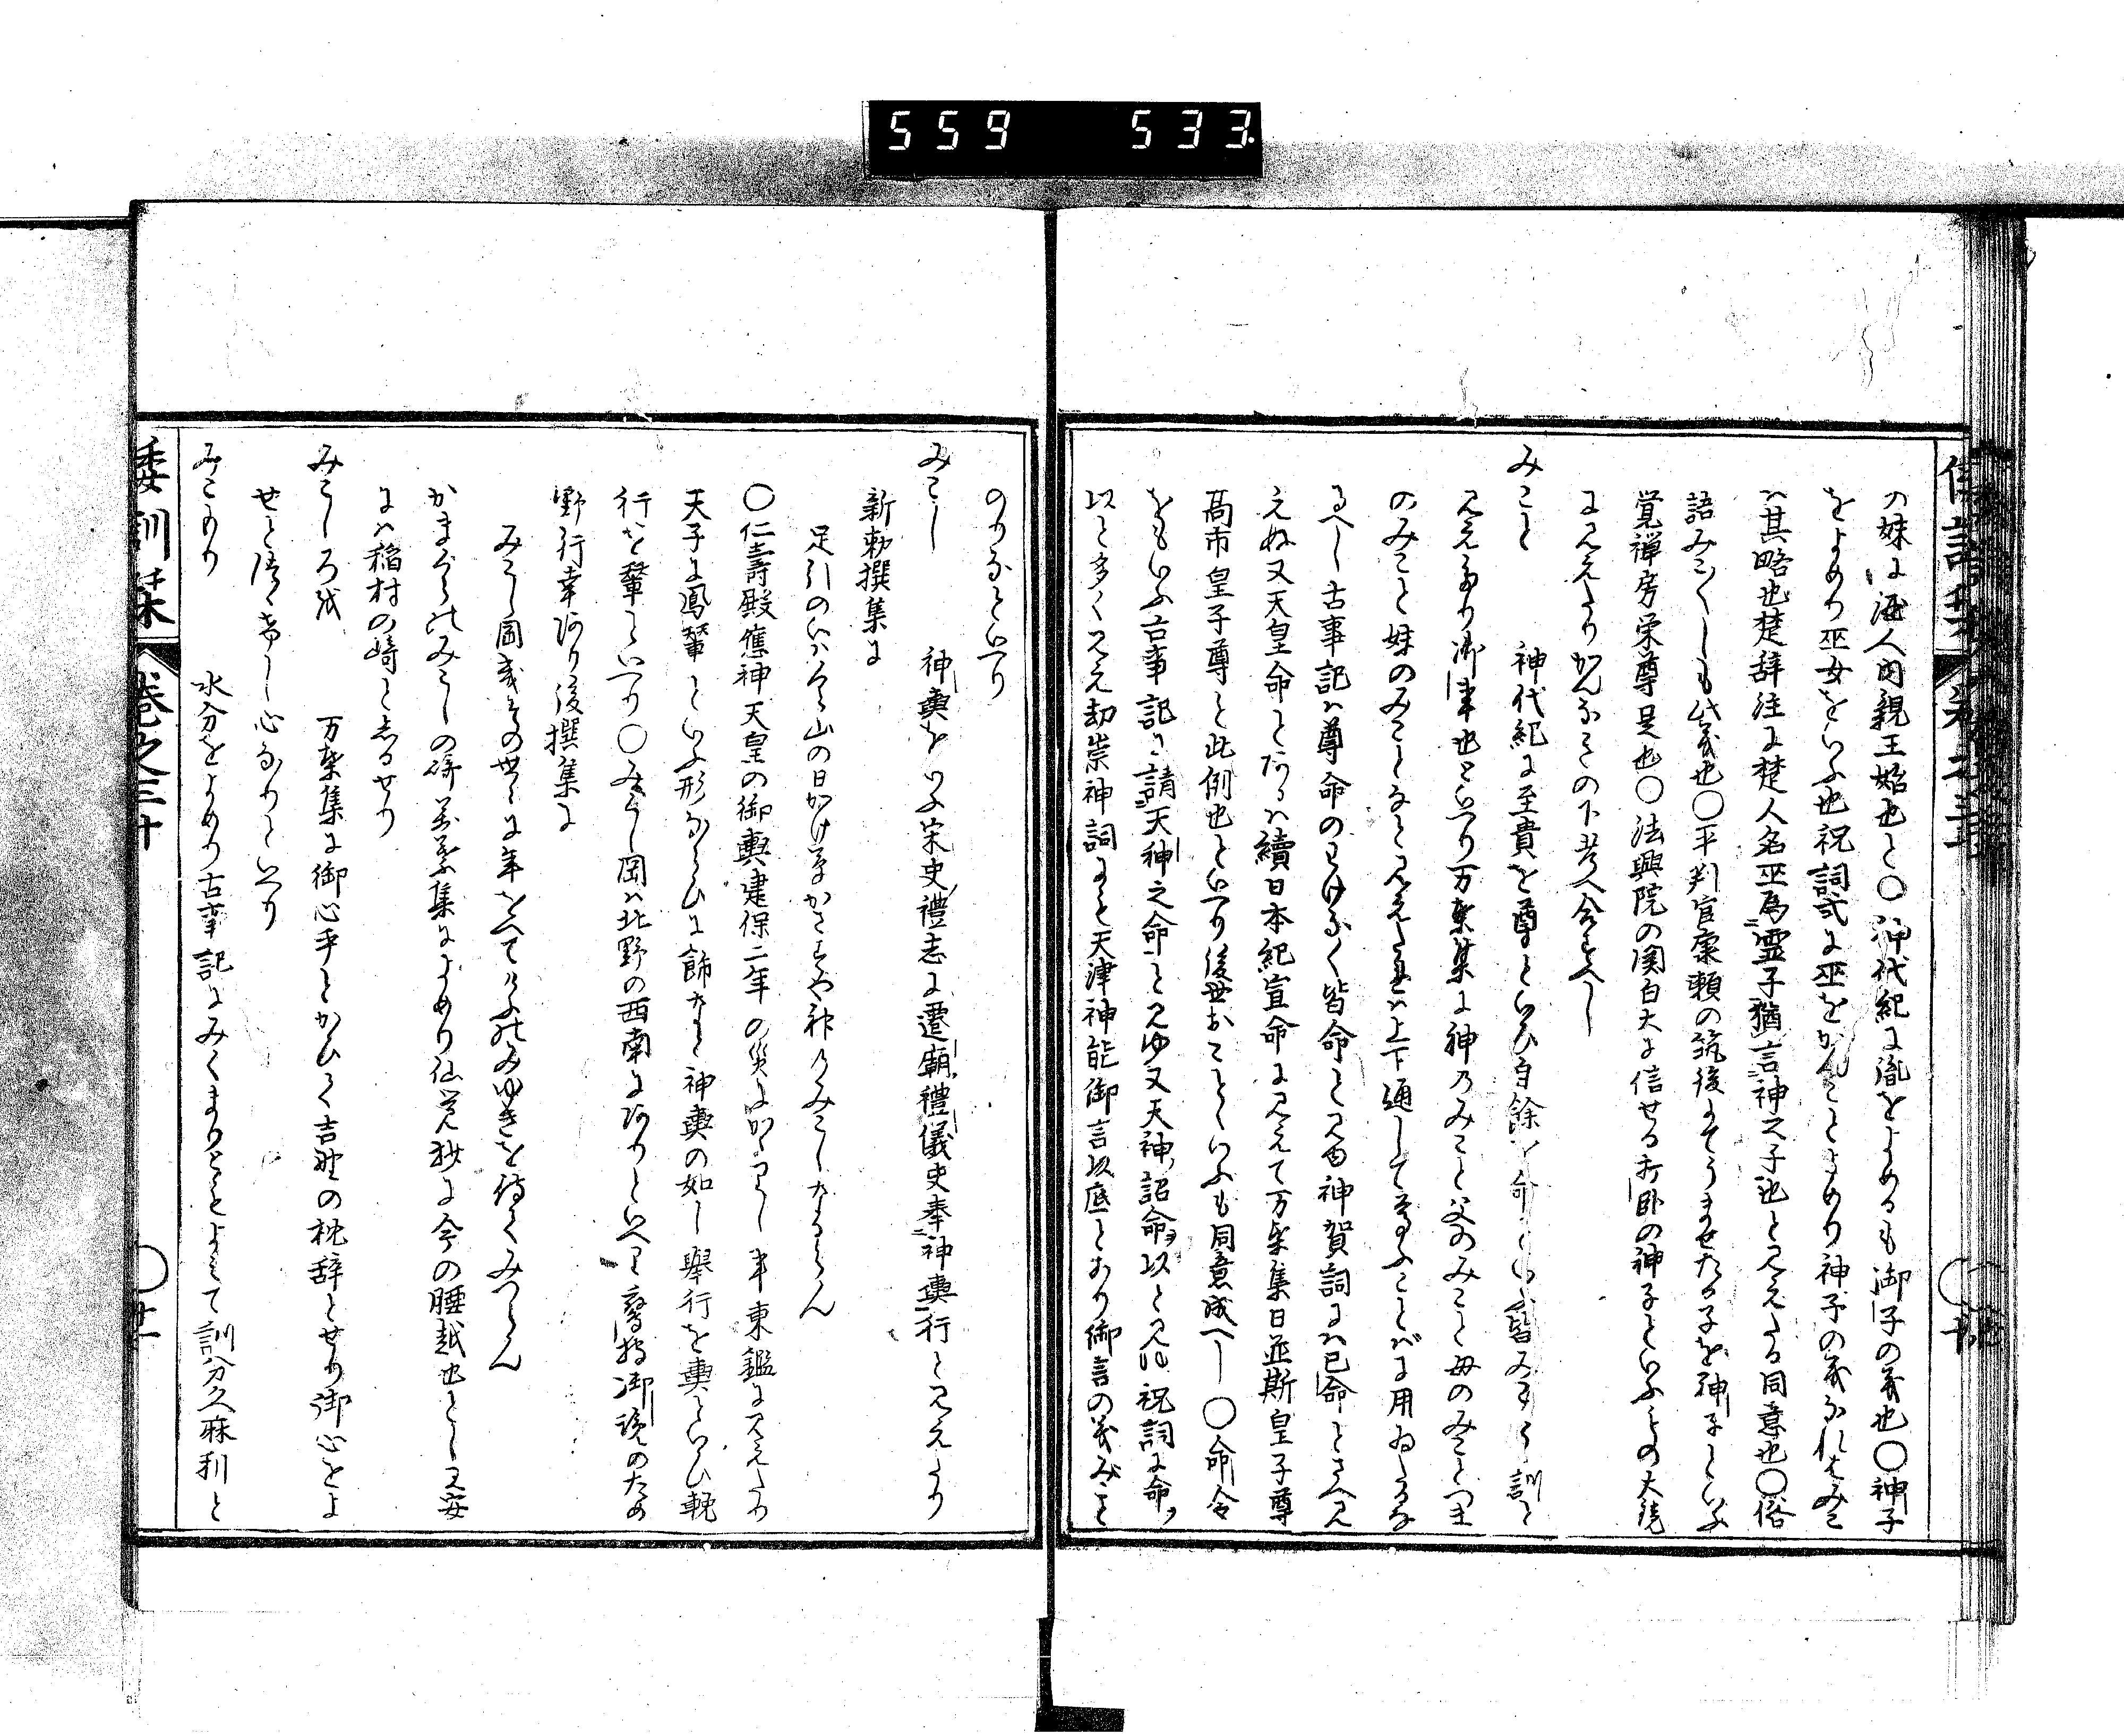 559 533
の妹は海人内親王始也と〇神代紀に胤をよめるも御子の義也〇神子
をよめり巫女をいふ也祝詞式に巫をかんことよめり神子の義なれはみこ
は其略也楚辞注に楚人名巫為霊子猶言神之子也と見えたる同意也〇俗
語みこくしも此義也〇平判官康頼の筑後にてうませたる子を神子といふ
覚禅房栄尊是也〇法興院の関白大に信せる打臥の神子といふもの大鏡
に見えたりかんなきの下考へ合すへし
みこと　神代紀に至貴を尊といひ自餘を命といふ皆みことゝ訓と
見えたり御事也といへり万葉集に神のみこと父のみこと母のみことつま
のみこと妹のみことなと見えたれは上下通して尊ふことばに用ゐたるな
るへし古事記は尊命のわけなく皆命と見ゆ神賀詞には已命とさへ見
えぬ又天皇命とあるは續日本紀宣命に見えて万葉集日並斯皇子尊
高市皇子尊と此例也といへり後世おことゝいふも同意成へし〇命令
をもいふ古事記に請天神之命と見ゆ又天神詔命以と見ゆ祝詞に命
以と多く見え却祟神詞にも天津神能御言以底とあり御言の義みこと
のりなといへり
みこし　神輿をいふ宋史禮志に遷廟禮儀史奉神輿行と見えたり
新勅撰集に
足引のいはくら山の日かけ草かさすや神のみこしなるらん
〇仁壽殿應神天皇の御輿建保二年の災にかゝりし事東鑑に見えたり
天子に鳳輦といふ形ならひに飾なと神輿の如し舉行を輿といひ輓
行を輦といへり〇みこし岡は北野の西南にありといへり齋場御禊のため
野行幸あり後撰集に
みこし岡幾その世々に年をへてけふのみゆきを待てみつらん
かまくらのみこしの﨑万葉集によめり仙覚抄に今の腰越也とし又安
には稲村の﨑と志るせり
みこゝろを　万葉集に御心乎とかひて吉野の枕辞とせり御心をよ
せと
水分をよめり古事記にみくまりともよみて訓分久麻利と
みこもり
倭訓栞　巻之三十　〇廿一